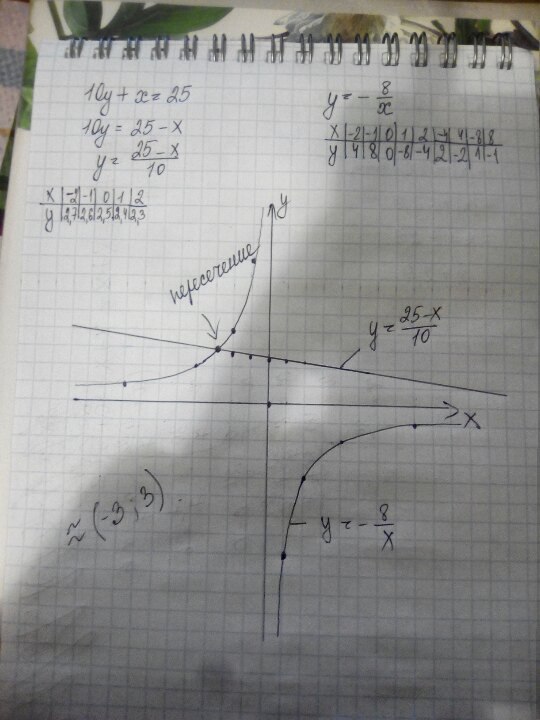 10y + x = 25
10y = 25 - x
y = (25 - x)/10
x | -2 | -1 | 0 | 1 | 2
y | 2,7 | 2,6 | 2,5 | 2,4 | 2,3
y = - 8/x
x | -2 | -1 | 0 | 1 | 2 | -4 | 4 | -8 | 8
y | 4 | 8 | 0 | -8 | -4 | 2 | -2 | 1 | -1
y
пересечение
y = (25-x)/10
x
≈ (-3; 3).
y = - 8/x